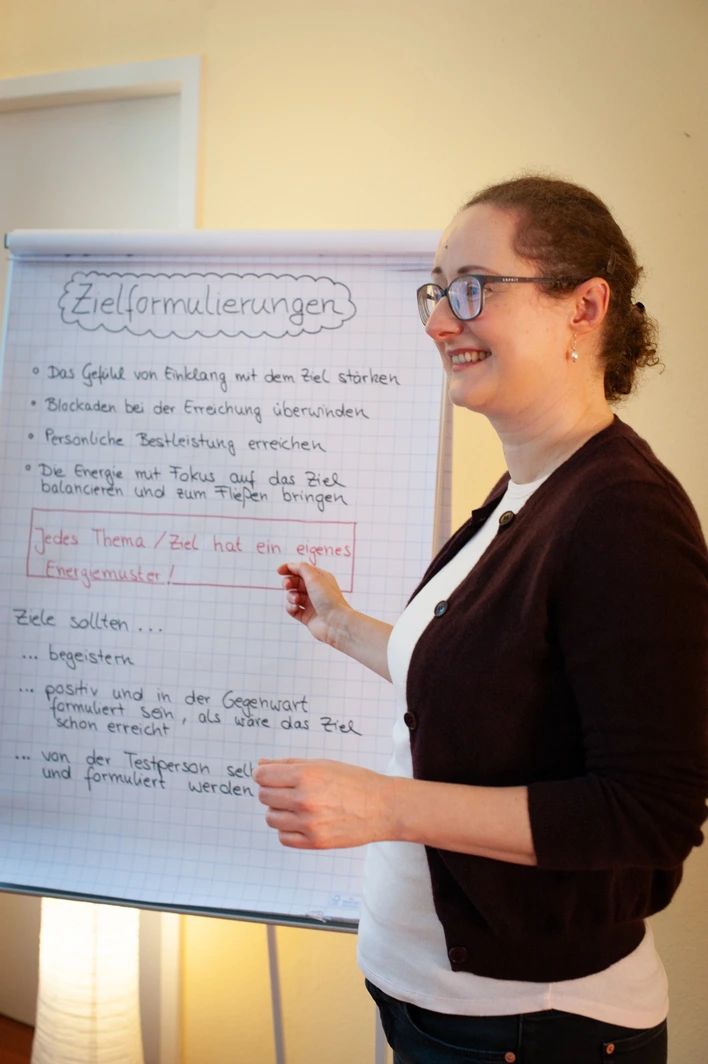 Zielformulierungen
Das Gefühl von Einklang mit dem Ziel stärken
Blockaden bei der Erreichung überwinden
Persönliche Bestleistung erreichen
Die Energie mit Fokus auf das Ziel
balancieren und zum Fließen bringen
Jedes Thema / Ziel hat ein eigenes
Energiemuster!
Ziele sollten ...
... begeistern
... positiv und in der Gegenwart
formuliert sein, als wäre das Ziel
schon erreicht
... von der Testperson
und formuliert werden
ESPRIT